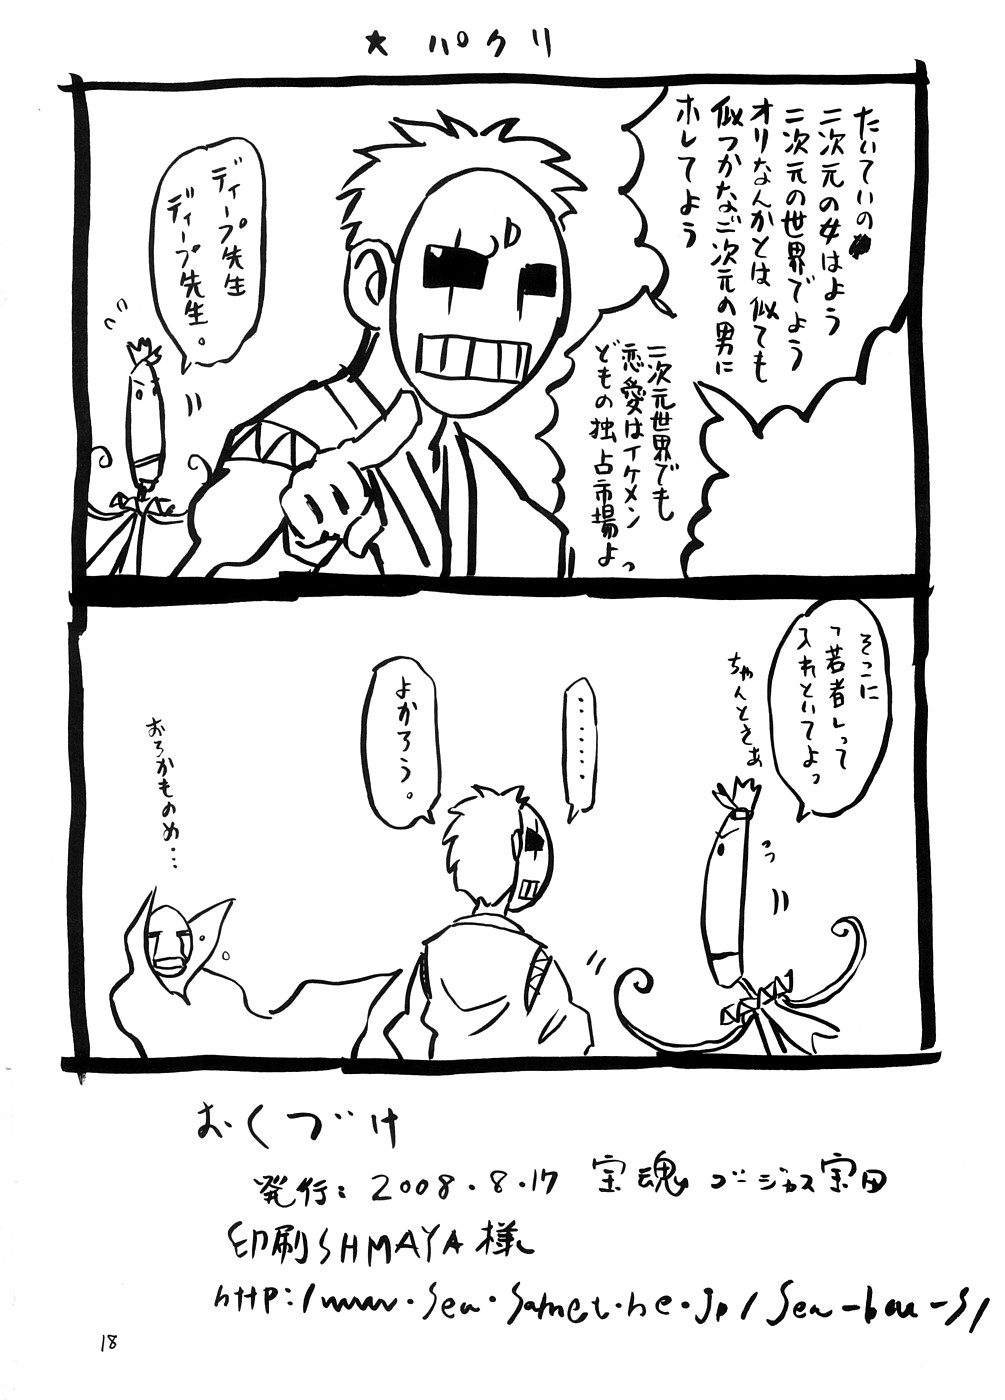 ★ パクリ
たいていの
二次元の女はよう
二次元の世界でよう
オリなんかとは似ても
似つかなご次元の男に
ホレてよう
二次元世界でも
恋愛はイケメン
どもの独占市場よっ
ディープ先生
ディープ先生。
そこに
「若者」って
入れといてよっ
ちゃんとさぁ
……
よかろう。
おろかものめ…
おくづけ
発行:2008.8.17 宝魂 ゴージャス宝田
印刷SHMAYA様
18